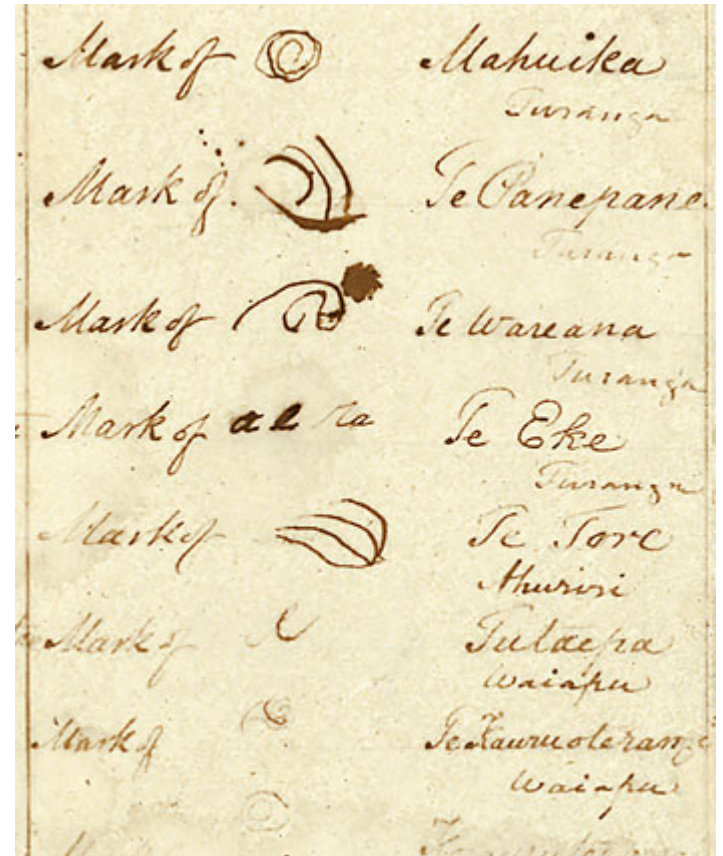 Mark of Mahuika
Turanga
Mark of Te Panepane
Turanga
Mark of Te Wareana
Turanga
Mark of a l ra Te Eke
Turanga
Mark of Te Tore
Ahuriri
Mark of Tutaepa
Waiapu
Mark of
Waiapu